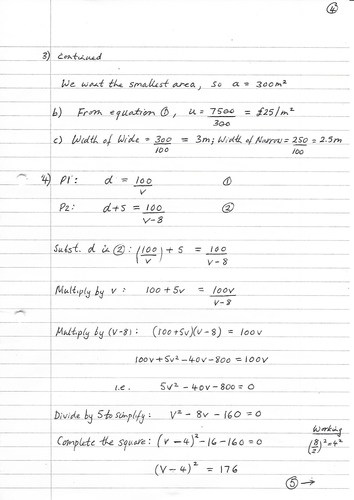 ④
3) Continued
We want the smallest area, so a = 300m²
b) From equation ①, u = 7500/300 = £25/m²
c) Width of Wide = 300/100 = 3m; Width of Narrow = 250/100 = 2.5m
4) P1: d = 100/v ①
P2: d+5 = 100/v-8 ②
Subst. d in ②: (100/v) + 5 = 100/v-8
Multiply by v: 100 + 5v = 100v/v-8
Multiply by (v-8): (100+5v)(v-8) = 100v
100v+5v²-40v-800 = 100v
i.e. 5v²-40v-800 = 0
Divide by 5 to simplify: v²-8v-160 = 0
Working
Complete the square: (v-4)²-16-160 = 0 (8/2)²=4²
(v-4)² = 176
⑤ →